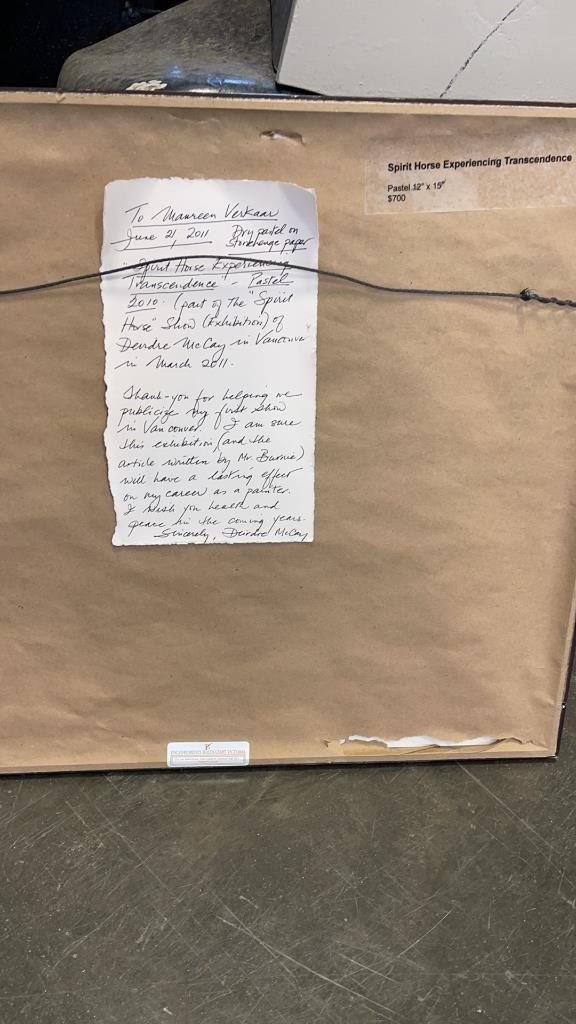 Spirit Horse Experiencing Transcendence
Pastel 12" x 15"
$700
To Maureen Verkaar
June 21, 2011 Dry pastel on
Stonehenge paper
"Spirit Horse Experiencing
Transcendence" - Pastel
2010. (part of the "Spirit
Horse" Show (Exhibition) of
Deirdre McCay in Vancouver
in March 2011.
Thank-you for helping me
publicize my first show
in Vancouver. I am sure
this exhibition (and the
article written by Mr.
will have a lasting effect
on my career as a painter.
I wish you health and
peace in the coming years.
Sincerely, Deirdre McCay